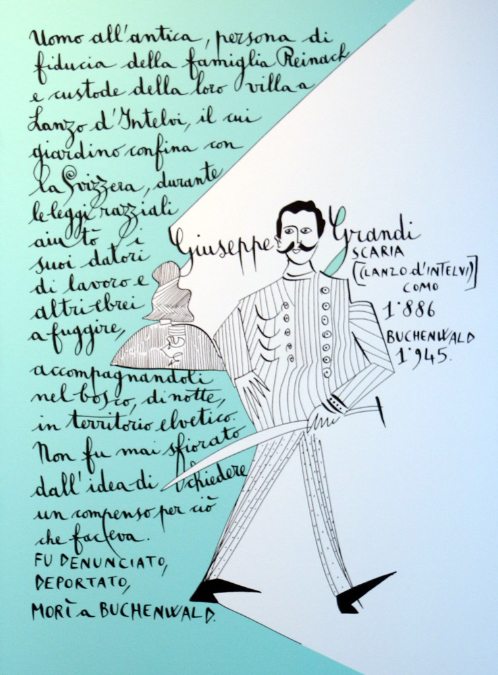 Uomo all'antica, persona di
fiducia della famiglia Reinach
e custode della loro villa a
Lanzo d'Intelvi, il cui
giardino confina con
la Svizzera, durante
le leggi razziali
aiutò i
suoi datori
di lavoro e
altri ebrei
a fuggire,
accompagnandoli
nel bosco, di notte,
in territorio elvetico.
Non fu mai sfiorato
dall'idea di chiedere
un compenso per ciò
che faceva.
FU DENUNCIATO,
DEPORTATO,
MORÌ a BUCHENWALD.
Giuseppe Grandi
SCARIA
[(LANZO d'INTELVI)]
COMO
1˙886
BUCHENWALD
1˙945.